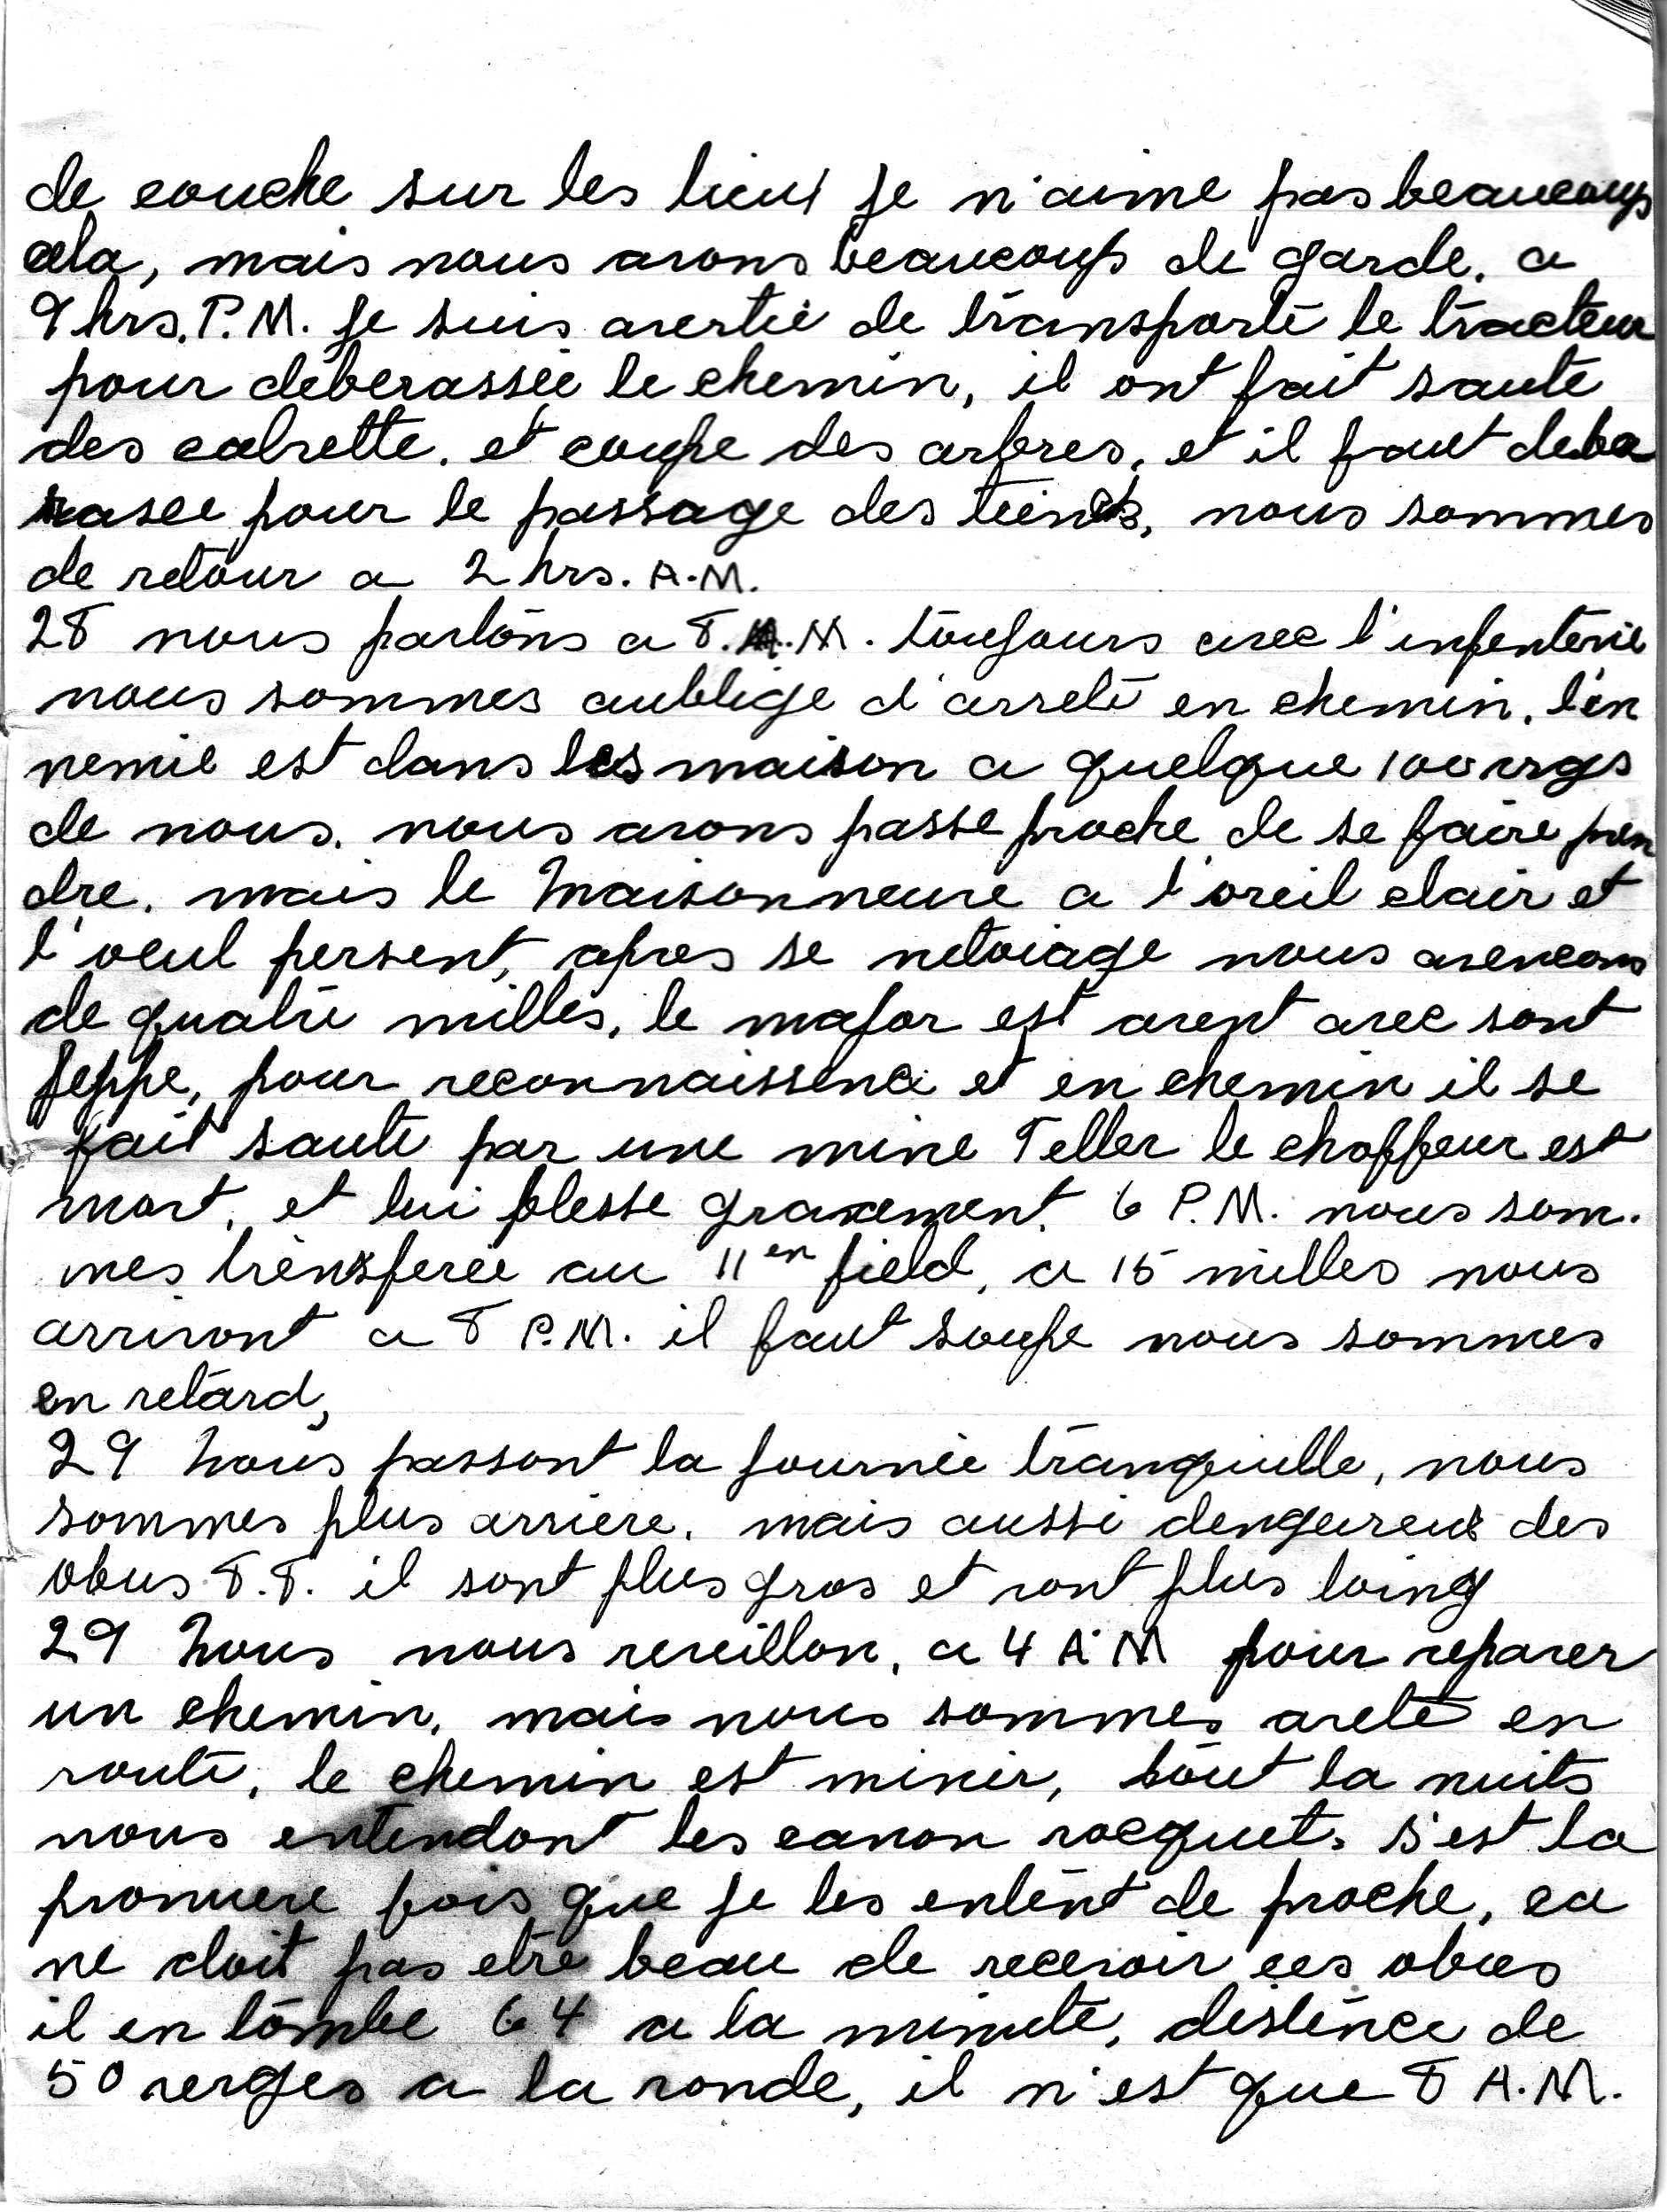 de couche sur les lieux je n'aime pas beaucoup
cela, mais nous avons beaucoup de garde. a
9 hrs. P.M. je suis avertie de transporté le tracteur
pour déberassée le chemin, il ont fait saute
des calvette. et coupe des arbres, et il faut deba
rasee pour le passage des teinck, nous sommes
de retour a 2 hrs. A.M.
28 nous partons a 8. A.M. toujours avec l'infenterie
nous sommes aublige d'arreté en chemin. l'en
nemie est dans les maison a quelque 100 vrgs
de nous. nous avons passe proche de se faire pren
dre. mais le Maisonneuve a l'oreil clair et
l'oeul persent, apres se netoiage nous avencons
de quatre milles, le major est avent avec sont
jeppe, pour reconnaissence et en chemin il se
fait saute par une mine Teller le choffeur est
mort, et lui blesse gravement. 6 P.M. nous som.
mes trensferée au 11en field, a 15 milles nous
arrivont a 8 P.M. il faut soupe nous sommes
en retard,
29 nous passont la journée tranquille, nous
sommes plus arriere. mais aussi dengereux des
obus 8.8. il sont plus gros et vont plus loing
29 nous nous reveillon, a 4 A.M pour reparer
un chemin, mais nous sommes areté en
route, le chemin est miner, tout la nuits
nous entendont les canon rocquet. s'est la
promiere fois que je les entent de proche, ca
ne doit pas etre beau de recevoir ces obus
il en tombe 64 a la minute, distence de
50 verges a la ronde, il n'est que 8 A.M.